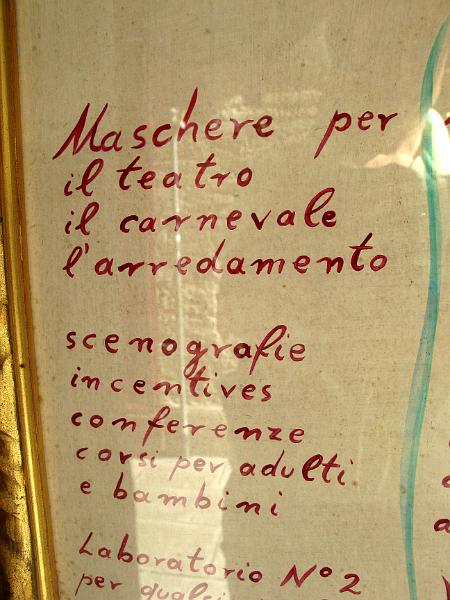 Maschere per
il teatro
il carnevale
l'arredamento
scenografie
incentives
conferenze
corsi per adulti
e bambini
Laboratorio Nº 2
per